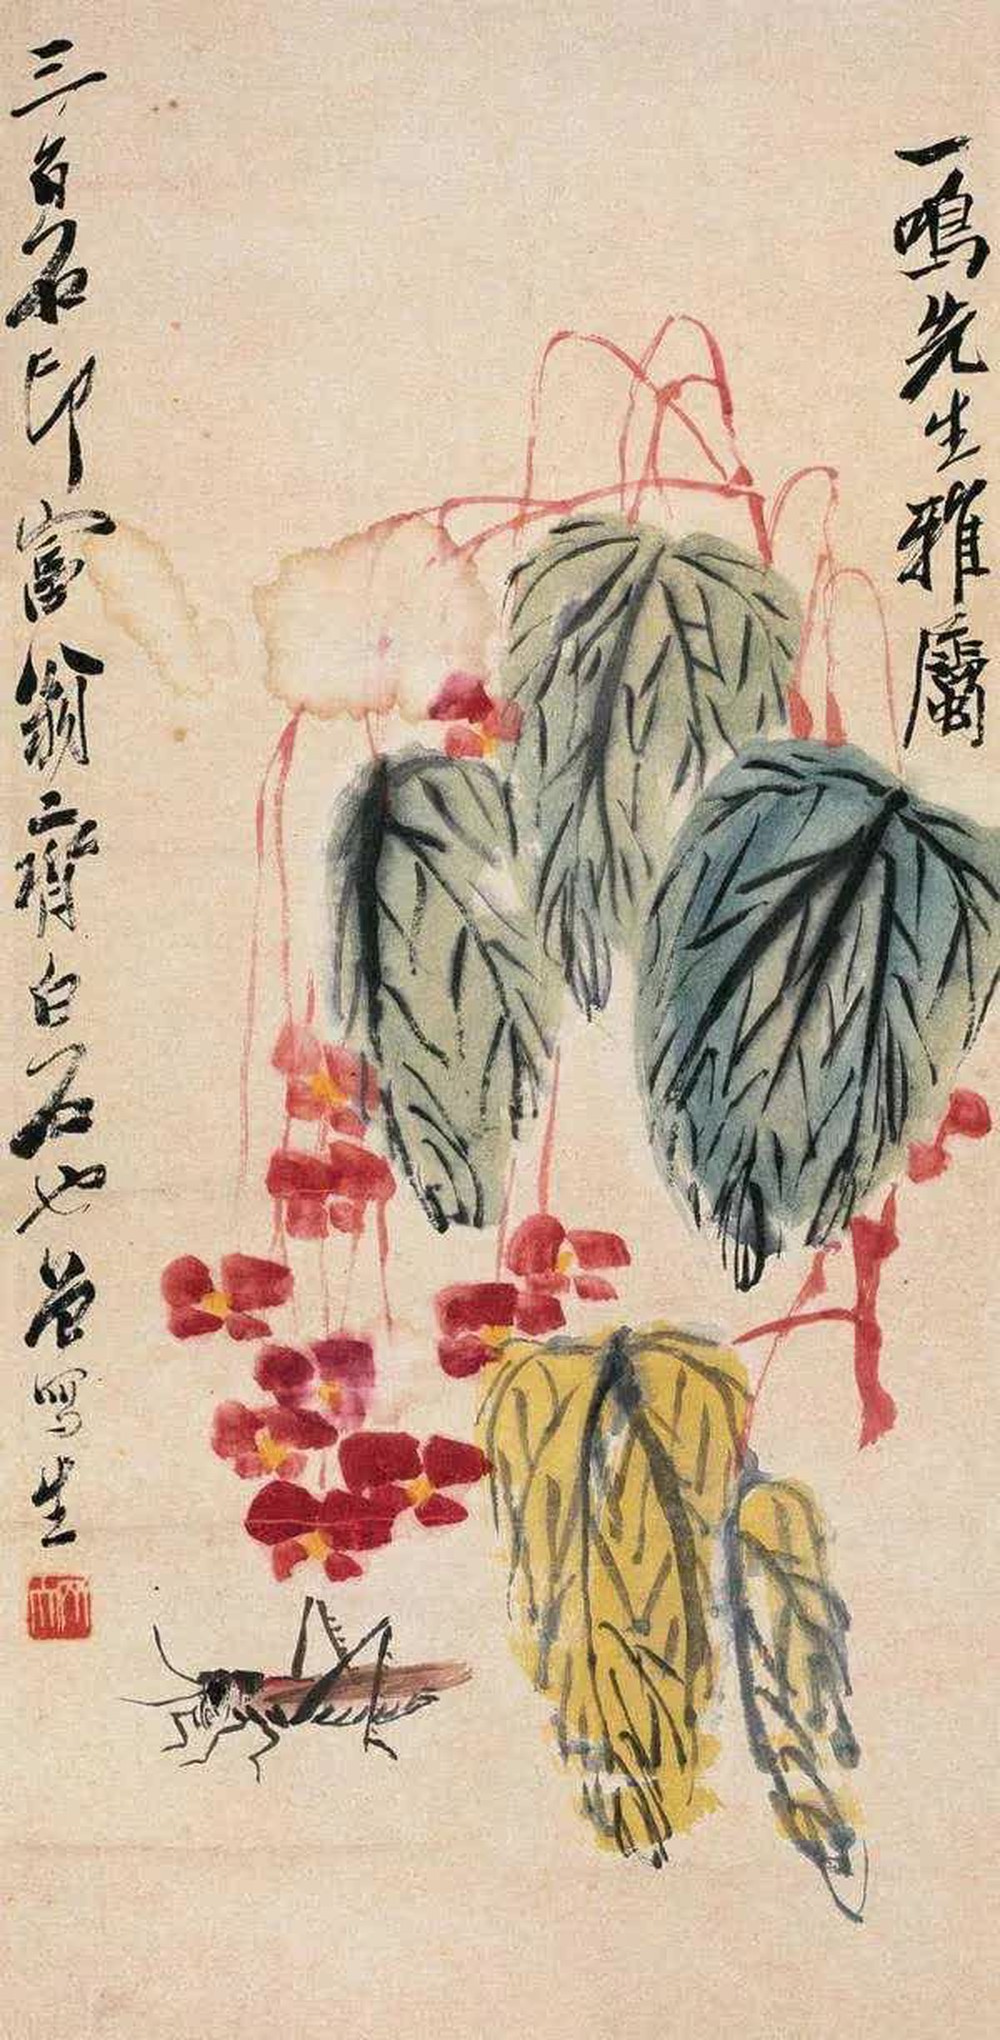 一鳴先生雅屬
三百石印富翁齊白石也曾寫生